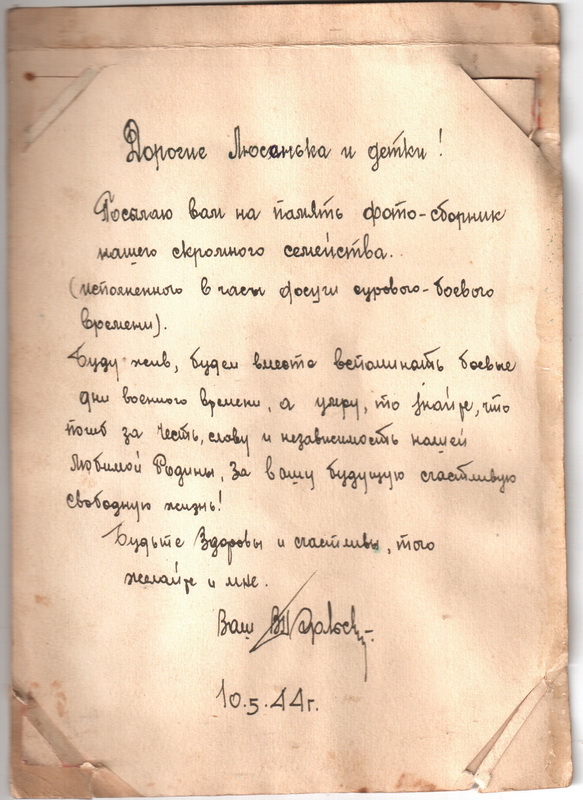 Дорогие Люсанька и детки!
Посылаю вам на память фото-сборник
нашего скромного семейства.
(исполненного в часы досуги сурового-боевого
времени).
Буду жив, будем вместе вспоминать боевые
дни военного времени, а умру, то знайте, что
погиб за честь, славу и независимость нашей
Любимой Родины, За вашу будущую счастливую
свободную жизнь!
Будьте Здоровы и счастливы, того
желайте и мне.
Ваш
10.5.44г.